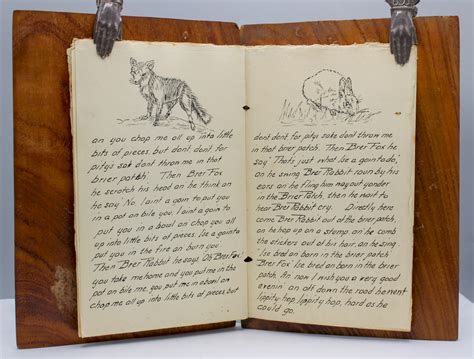 an you chop me all up into little
bits of pieces, but dont, dont for
pitys sak dont throw me in that
brier patch. Then Brer Fox
he scratch his head an he think an
he say 'No. I aint a goin to put you
in a pot an bile you. I aint a goin to
put you in a bowl an chop you all
up into little bits of pieces. Ise a goin to
put you in the fire an born you
Then Brer Rabbit he say, Oh Brer Fox,
you take me home and you put me in the
pot an bile me, you put me in a bowl an
chop me all up into little bits of pieces but
dont dont for pitys sake dont throw me
in that brier patch. Then Brer Fox he
say 'Thats just what Ise a goin to do',
an he swing Brer Rabbit roun by his
ears an he fling him way out yander
in the Brier Patch, then he wait to
hear Brer Rabbit cry. Directly here
come Brer Rabbit out of the brier patch,
an he hop up on a stump an he comb
the stickers out of his hair, an he sing
Ise bred an born in the brier patch
Brer Fox Ise bred an born in the brier
patch. An now I wish you a very good
evenin' an off down the road he went
lippity hop, lippity hop, hard as he
could go.